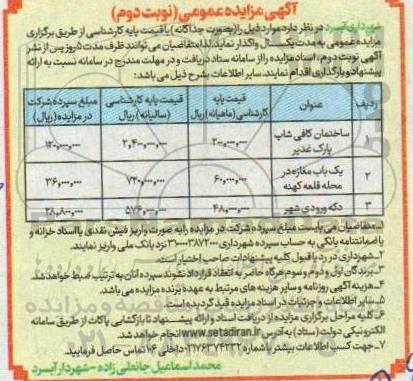 آگهی مزایده عمومی (نوبت دوم)
شهرداری آبسرد در نظر دارد موارد ذیل را (بصورت جداگانه) با قیمت پایه کارشناسی از طریق برگزاری
مزایده عمومی به مدت یکسال واگذار نماید، لذا متقاضیان می توانند ظرف مدت ۵ روز پس از نشر
آگهی نوبت دوم، اسناد مزایده را از سامانه ستاد دریافت و در مهلت مندرج در سامانه نسبت به ارائه
پیشنهاد و بارگذاری اقدام نمایند. سایر اطلاعات بشرح ذیل می باشد:
ردیف عنوان قیمت پایه کارشناسی (ماهیانه) ریال قیمت پایه کارشناسی (سالیانه) ریال مبلغ سپرده شرکت در مزایده (ریال)
ساختمان کافی شاپ پارک غدیر ۲۰۰,۰۰۰,۰۰۰ ۲,۴۰۰,۰۰۰,۰۰۰ ۱۲۰,۰۰۰,۰۰۰
۲ یک باب مغازه در محله قلعه کهنه ۶۰,۰۰۰,۰۰۰ ۷۲۰,۰۰۰,۰۰۰ ۳۶,۰۰۰,۰۰۰
۳ دکه ورودی شهر ۴۸,۰۰۰,۰۰۰ ۵۷۶,۰۰۰,۰۰۰ ۲۸,۸۰۰,۰۰۰
۱_متقاضیان می بایست مبلغ سپرده شرکت در مزایده را به صورت واریز فیش نقدی یا اسناد خزانه و
یا ضمانتنامه بانکی به حساب سپرده شهرداری نزد بانک ملی واریز نمایند.
۲_شهرداری در رد یا قبول کلیه پیشنهادات صاحب اختیار است.
۳_برندگان اول و دوم و سوم هرگاه حاضر به انعقاد قرارداد نشوند سپرده آنان به ترتیب ضبط خواهد شد.
۴_هزینه آگهی روزنامه و سایر هزینه های مرتبط به عهده برنده مزایده می باشد.
۵_سایر اطلاعات و جزئیات در اسناد مزایده قید گردیده است.
۶_کلیه مراحل برگزاری مزایده از دریافت اسناد و ارائه پیشنهاد تا بازگشایی پاکات از طریق سامانه
الکترونیکی دولت (ستاد) به آدرس www.setadiran.ir انجام خواهد شد.
۷_جهت کسب اطلاعات بیشتر با شماره ۰۲۱۷۶۳۷۴۲۳۲ داخلی ۱۰۶ تماس حاصل فرمایید.
محمد اسماعیل جانعلی زاده - شهردار آبسرد